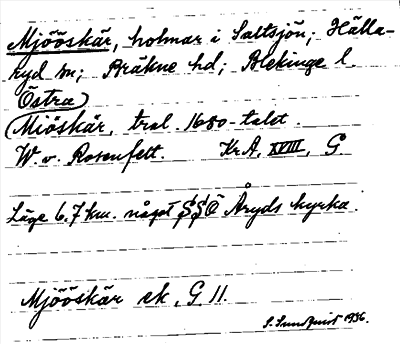 Mjööskär, holmar i Saltsjön; Hälla-
ryd sn; Bräkne hd; Blekinge l.
Östra)
(Miöskär, trol. 1680-talet.
W. v. Rosenfelt. Kr.A, XVIII, G.
Läge 6.7 km. något SSÖ Åryds kyrka.
Mjööskär ek, G 11.
S. Sundquist 1936.